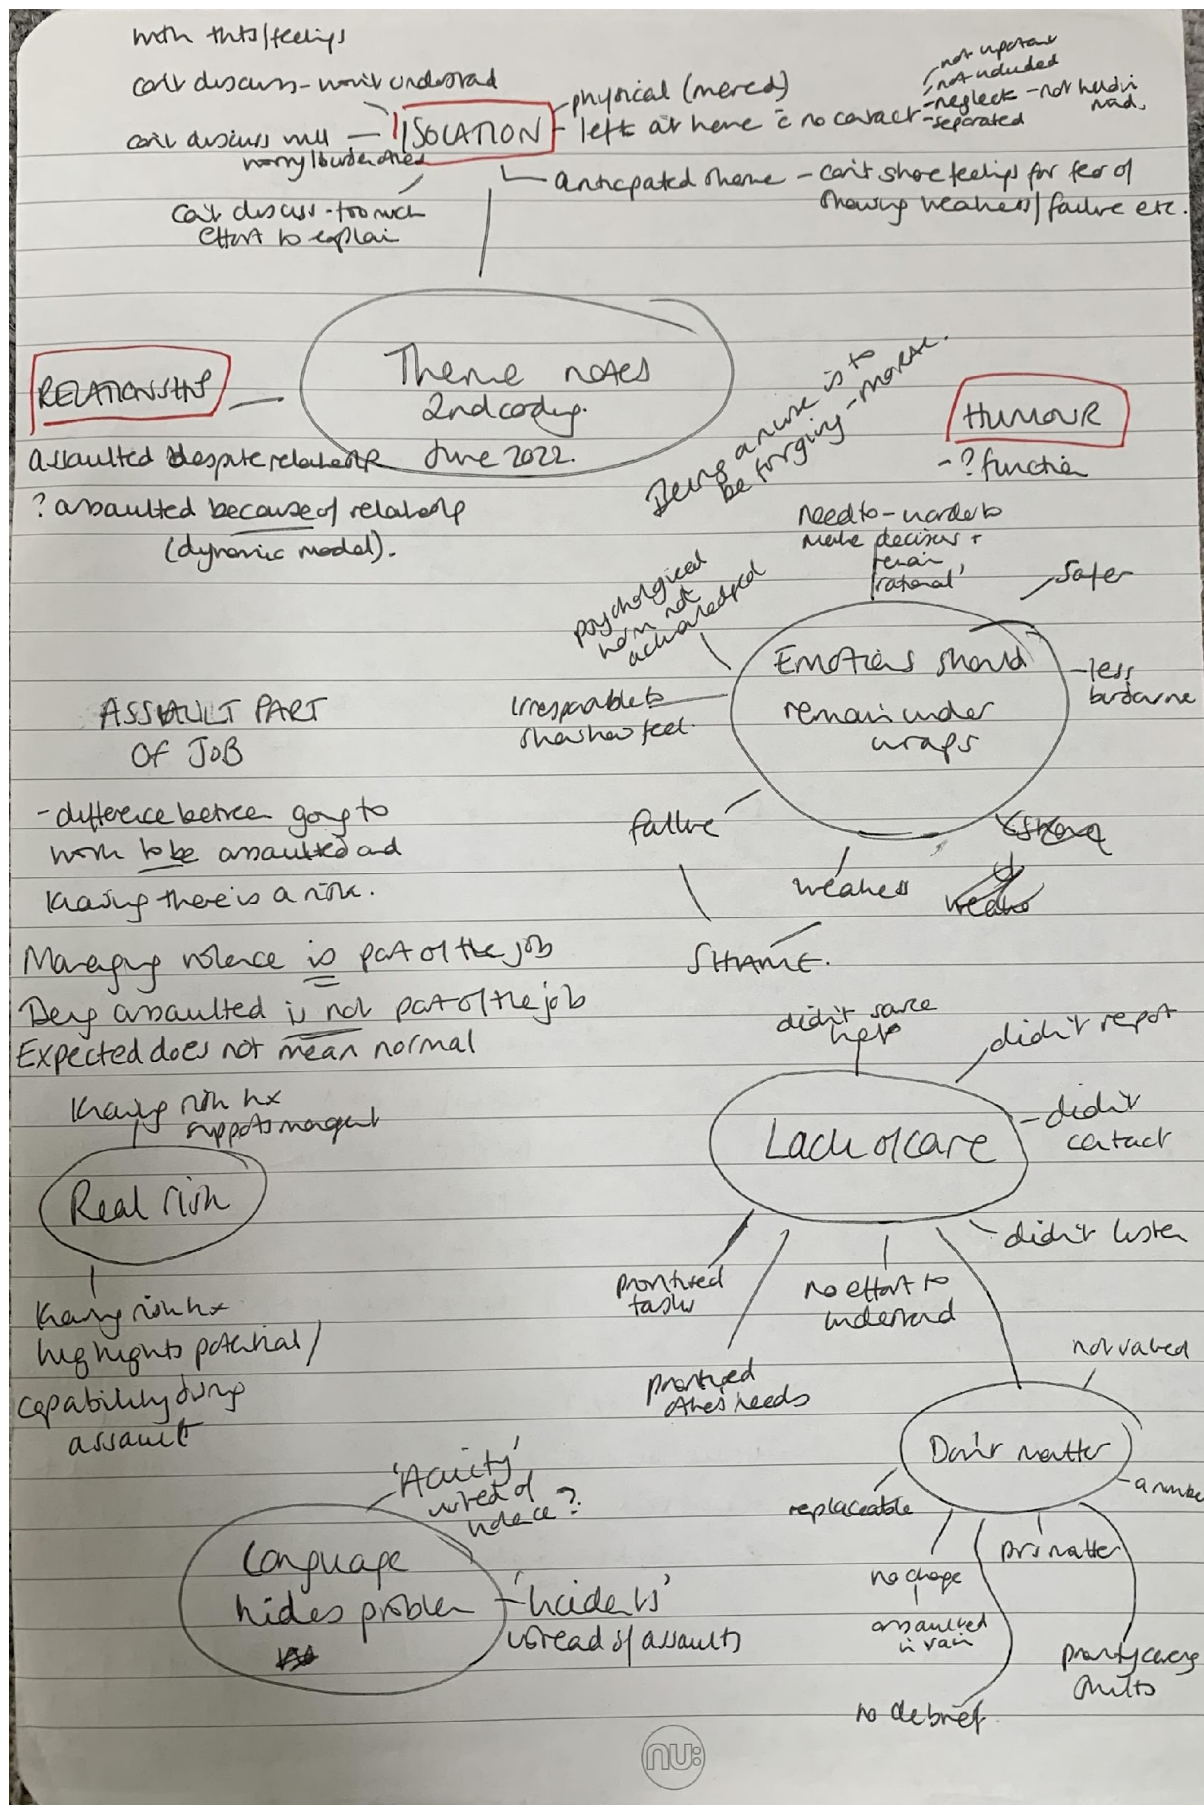 with thts/feelings
can't discuss - won't understand
can't discuss will
worry/burden others
can't discuss - too much
effort to explain
ISOLATION
physical (moved)
left at home c̄ no contact
- not important
- not included
- neglect - not held in
mind.
- separated
anticipated shame - can't share feelings for fear of
showing weakness/failure etc.
Theme notes
2nd coding.
June 2022.
RELATIONSHIP
assaulted despite relationship
? assaulted because of relationship
(dynamic model).
HUMOUR
- ? function
Being a nurse is to
be forgiving - moral.
need to - in order to
make decisions +
remain
'rational'
safer
psychological
harm not
acknowledged
Emotions should
remain under
wraps
less
burdensome
Irresponsible to
show how feel.
failure
weakness
SHAME.
ASSAULT PART
OF JOB
- difference between going to
work to be assaulted and
knowing there is a risk.
Managing violence is part of the job
Being assaulted is not part of the job
Expected does not mean normal
Knowing risk hx
supports management
Real risk
Knowing risk hx
highlights potential/
capability during
assault
didn't source
help
didn't report
Lack of care
didn't
contact
didn't listen
prioritised
tasks
no effort to
understand
prioritised
others needs
not valued
Don't matter
a number
replaceable
no change
assaulted
in vain
pts matter
no debrief
priority covering
shifts
'Acuity'
instead of
violence?
Language
hides problem
'Incidents'
instead of assaults
nu: